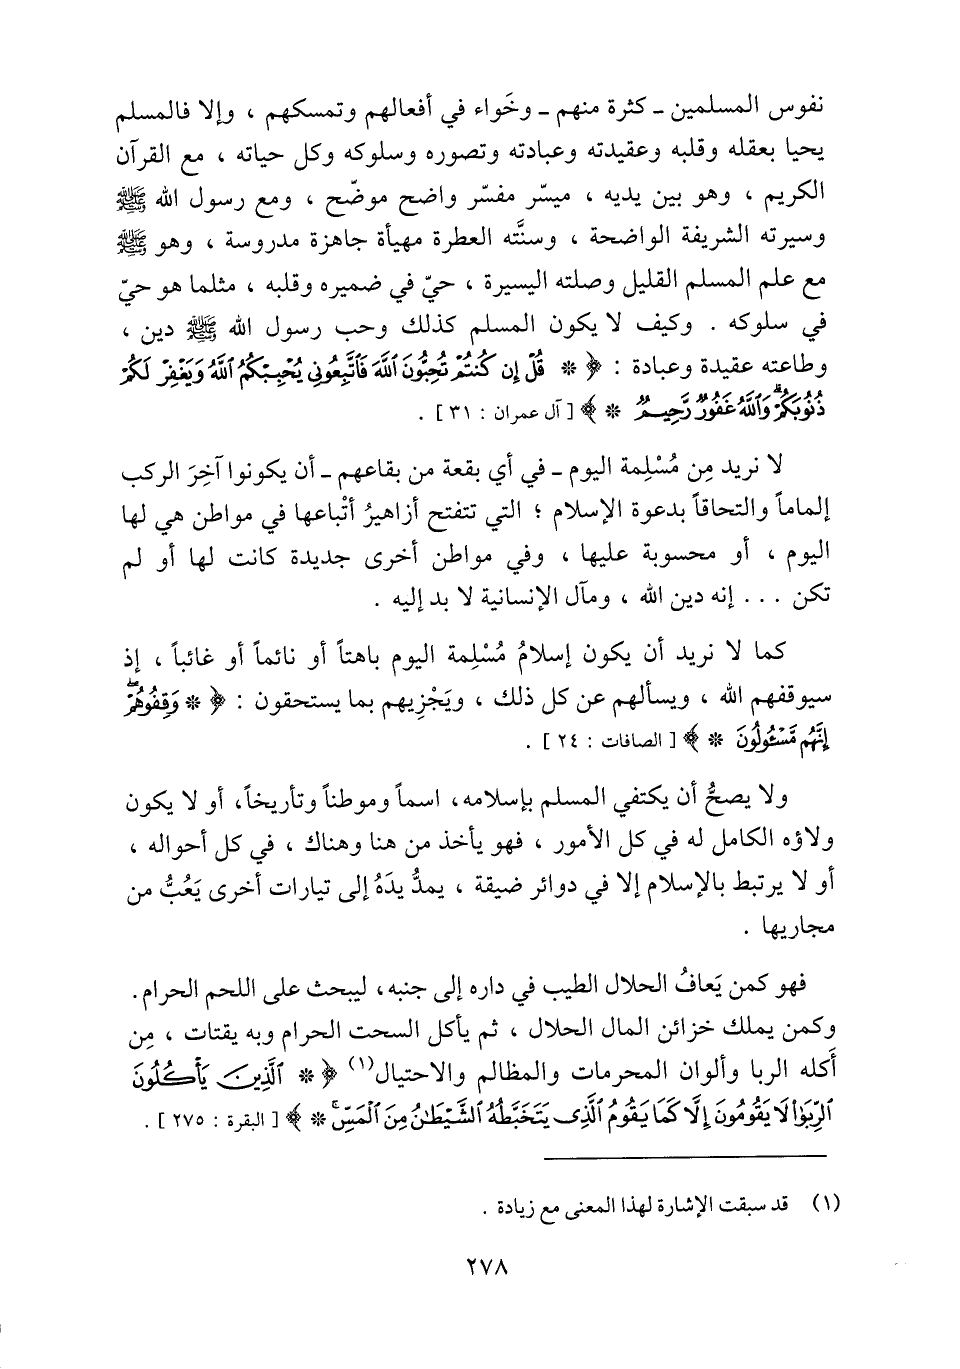 نفوس المسلمين ـ كثرة منهم ـ وخَواء في أفعالهم وتمسكهم ، وإلا فالمسلم
يحيا بعقله وقلبه وعقيدته وعبادته وتصوره وسلوكه وكل حياته ، مع القرآن
الكريم ، وهو بين يديه ، ميسّر مفسّر واضح موضّح ، ومع رسول الله ﷺ
وسيرته الشريفة الواضحة ، وسنَّته العطرة مهيأة جاهزة مدروسة ، وهو ﷺ
مع علم المسلم القليل وصلته اليسيرة ، حيّ في ضميره وقلبه ، مثلما هو حيّ
في سلوكه . وكيف لا يكون المسلم كذلك وحب رسول الله ﷺ دين ،
وطاعته عقيدة وعبادة : ﴿ * قُلْ إِن كُنتُمْ تُحِبُّونَ ٱللَّهَ فَٱتَّبِعُونِي يُحْبِبْكُمُ ٱللَّهُ وَيَغْفِرْ لَكُمْ
ذُنُوبَكُمْ ۗ وَٱللَّهُ غَفُورٌ رَّحِيمٌ * ﴾ [ آل عمران : ٣١ ] .
لا نريد مِن مُسْلِمة اليوم ـ في أي بقعة من بقاعهم ـ أن يكونوا آخِرَ الركب
إلماماً والتحاقاً بدعوة الإسلام ؛ التي تتفتح أزاهيرُ أتْباعها في مواطن هي لها
اليوم ، أو محسوبة عليها ، وفي مواطن أخرى جديدة كانت لها أو لم
تكن . . . إنه دين الله ، ومآل الإنسانية لا بد إليه .
كما لا نريد أن يكون إسلامُ مُسْلِمة اليوم باهتاً أو نائماً أو غائباً ، إذ
سيوقفهم الله ، ويسألهم عن كل ذلك ، ويَجْزِيهم بما يستحقون : ﴿ * وَقِفُوهُمْ ۖ
إِنَّهُم مَّسْئُولُونَ * ﴾ [ الصافات : ٢٤ ] .
ولا يصحُّ أن يكتفي المسلم بإسلامه، اسماً وموطناً وتأريخاً، أو لا يكون
ولاؤه الكامل له في كل الأمور ، فهو يأخذ من هنا وهناك ، في كل أحواله ،
أو لا يرتبط بالإسلام إلا في دوائر ضيقة ، يمدُّ يدَهُ إلى تيارات أخرى يَعُبُّ من
مجاريها .
فهو كمن يَعافُ الحلال الطيب في داره إلى جنبه، ليبحث على اللحم الحرام.
وكمن يملك خزائن المال الحلال ، ثم يأكل السحت الحرام وبه يقتات ، مِن
أَكله الربا وألوان المحرمات والمظالم والاحتيال(١) ﴿ * ٱلَّذِينَ يَأْكُلُونَ
ٱلرِّبَوٰا۟ لَا يَقُومُونَ إِلَّا كَمَا يَقُومُ ٱلَّذِى يَتَخَبَّطُهُ ٱلشَّيْطَٰنُ مِنَ ٱلْمَسِّ ۚ * ﴾ [ البقرة : ٢٧٥ ] .
(١) قد سبقت الإشارة لهذا المعنى مع زيادة .
٢٧٨